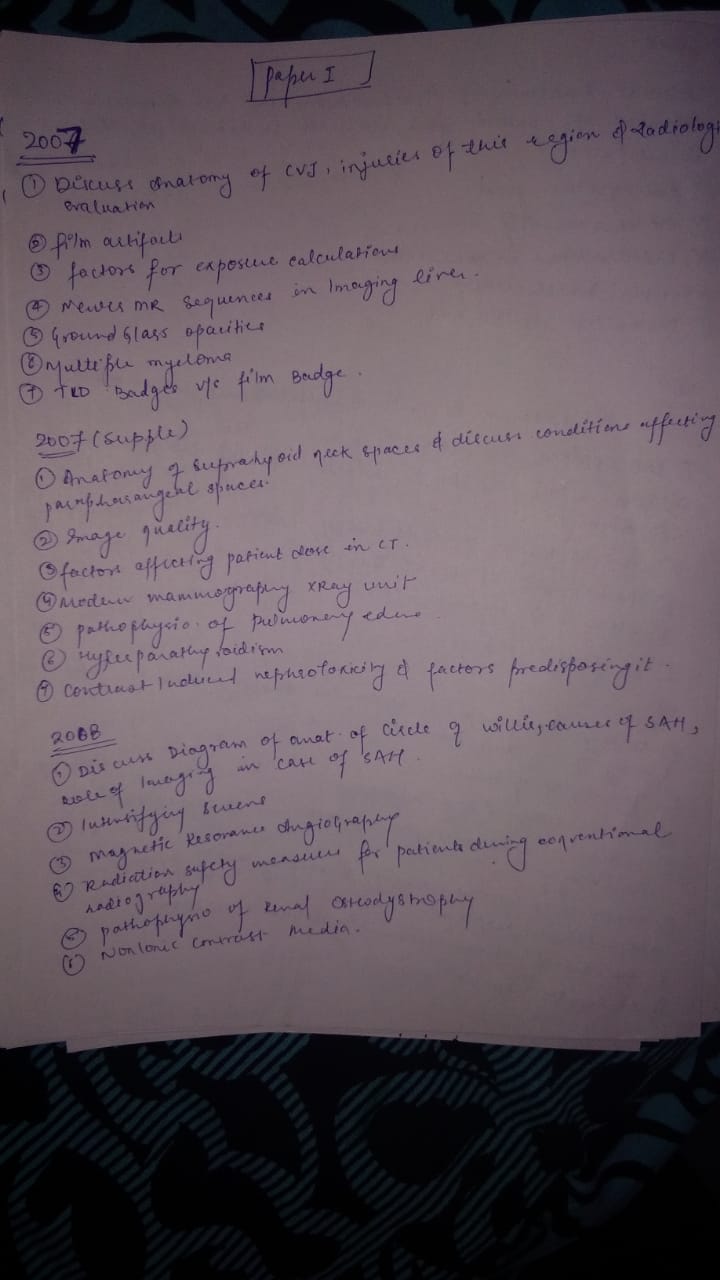 Paper I
2007
① Discuss anatomy of CVJ, injuries of this region & Radiolog
evaluation
② film artifacts
③ factors for exposure calculations
④ Newer MR sequences in Imaging liver.
⑤ Ground Glass opacities
⑥ Multiple myeloma
⑦ TLD Badges v/s film Badge.
2007 (Supple)
① Anatomy of Suprahyoid neck spaces & discuss conditions affecting
parapharangeal spaces.
② Image quality.
③ factors affecting patient dose in CT.
④ Modern mammography XRay unit
⑤ pathophysio. of Pulmonary edema
⑥ Hyperparathyroidism
⑦ Contrast Induced nephrotoxicity & factors predisposing it.
2008
① Discuss Diagram of anat. of Circle of willis, causes of SAH,
Role of Imaging in case of SAH.
② Intensifying Screens
③ Magnetic Resonance Angiography
④ Radiation safety measures for patients during conventional
radiography
⑤ pathophysio of Renal Osteodystrophy
⑥ NonIonic contrast Media.